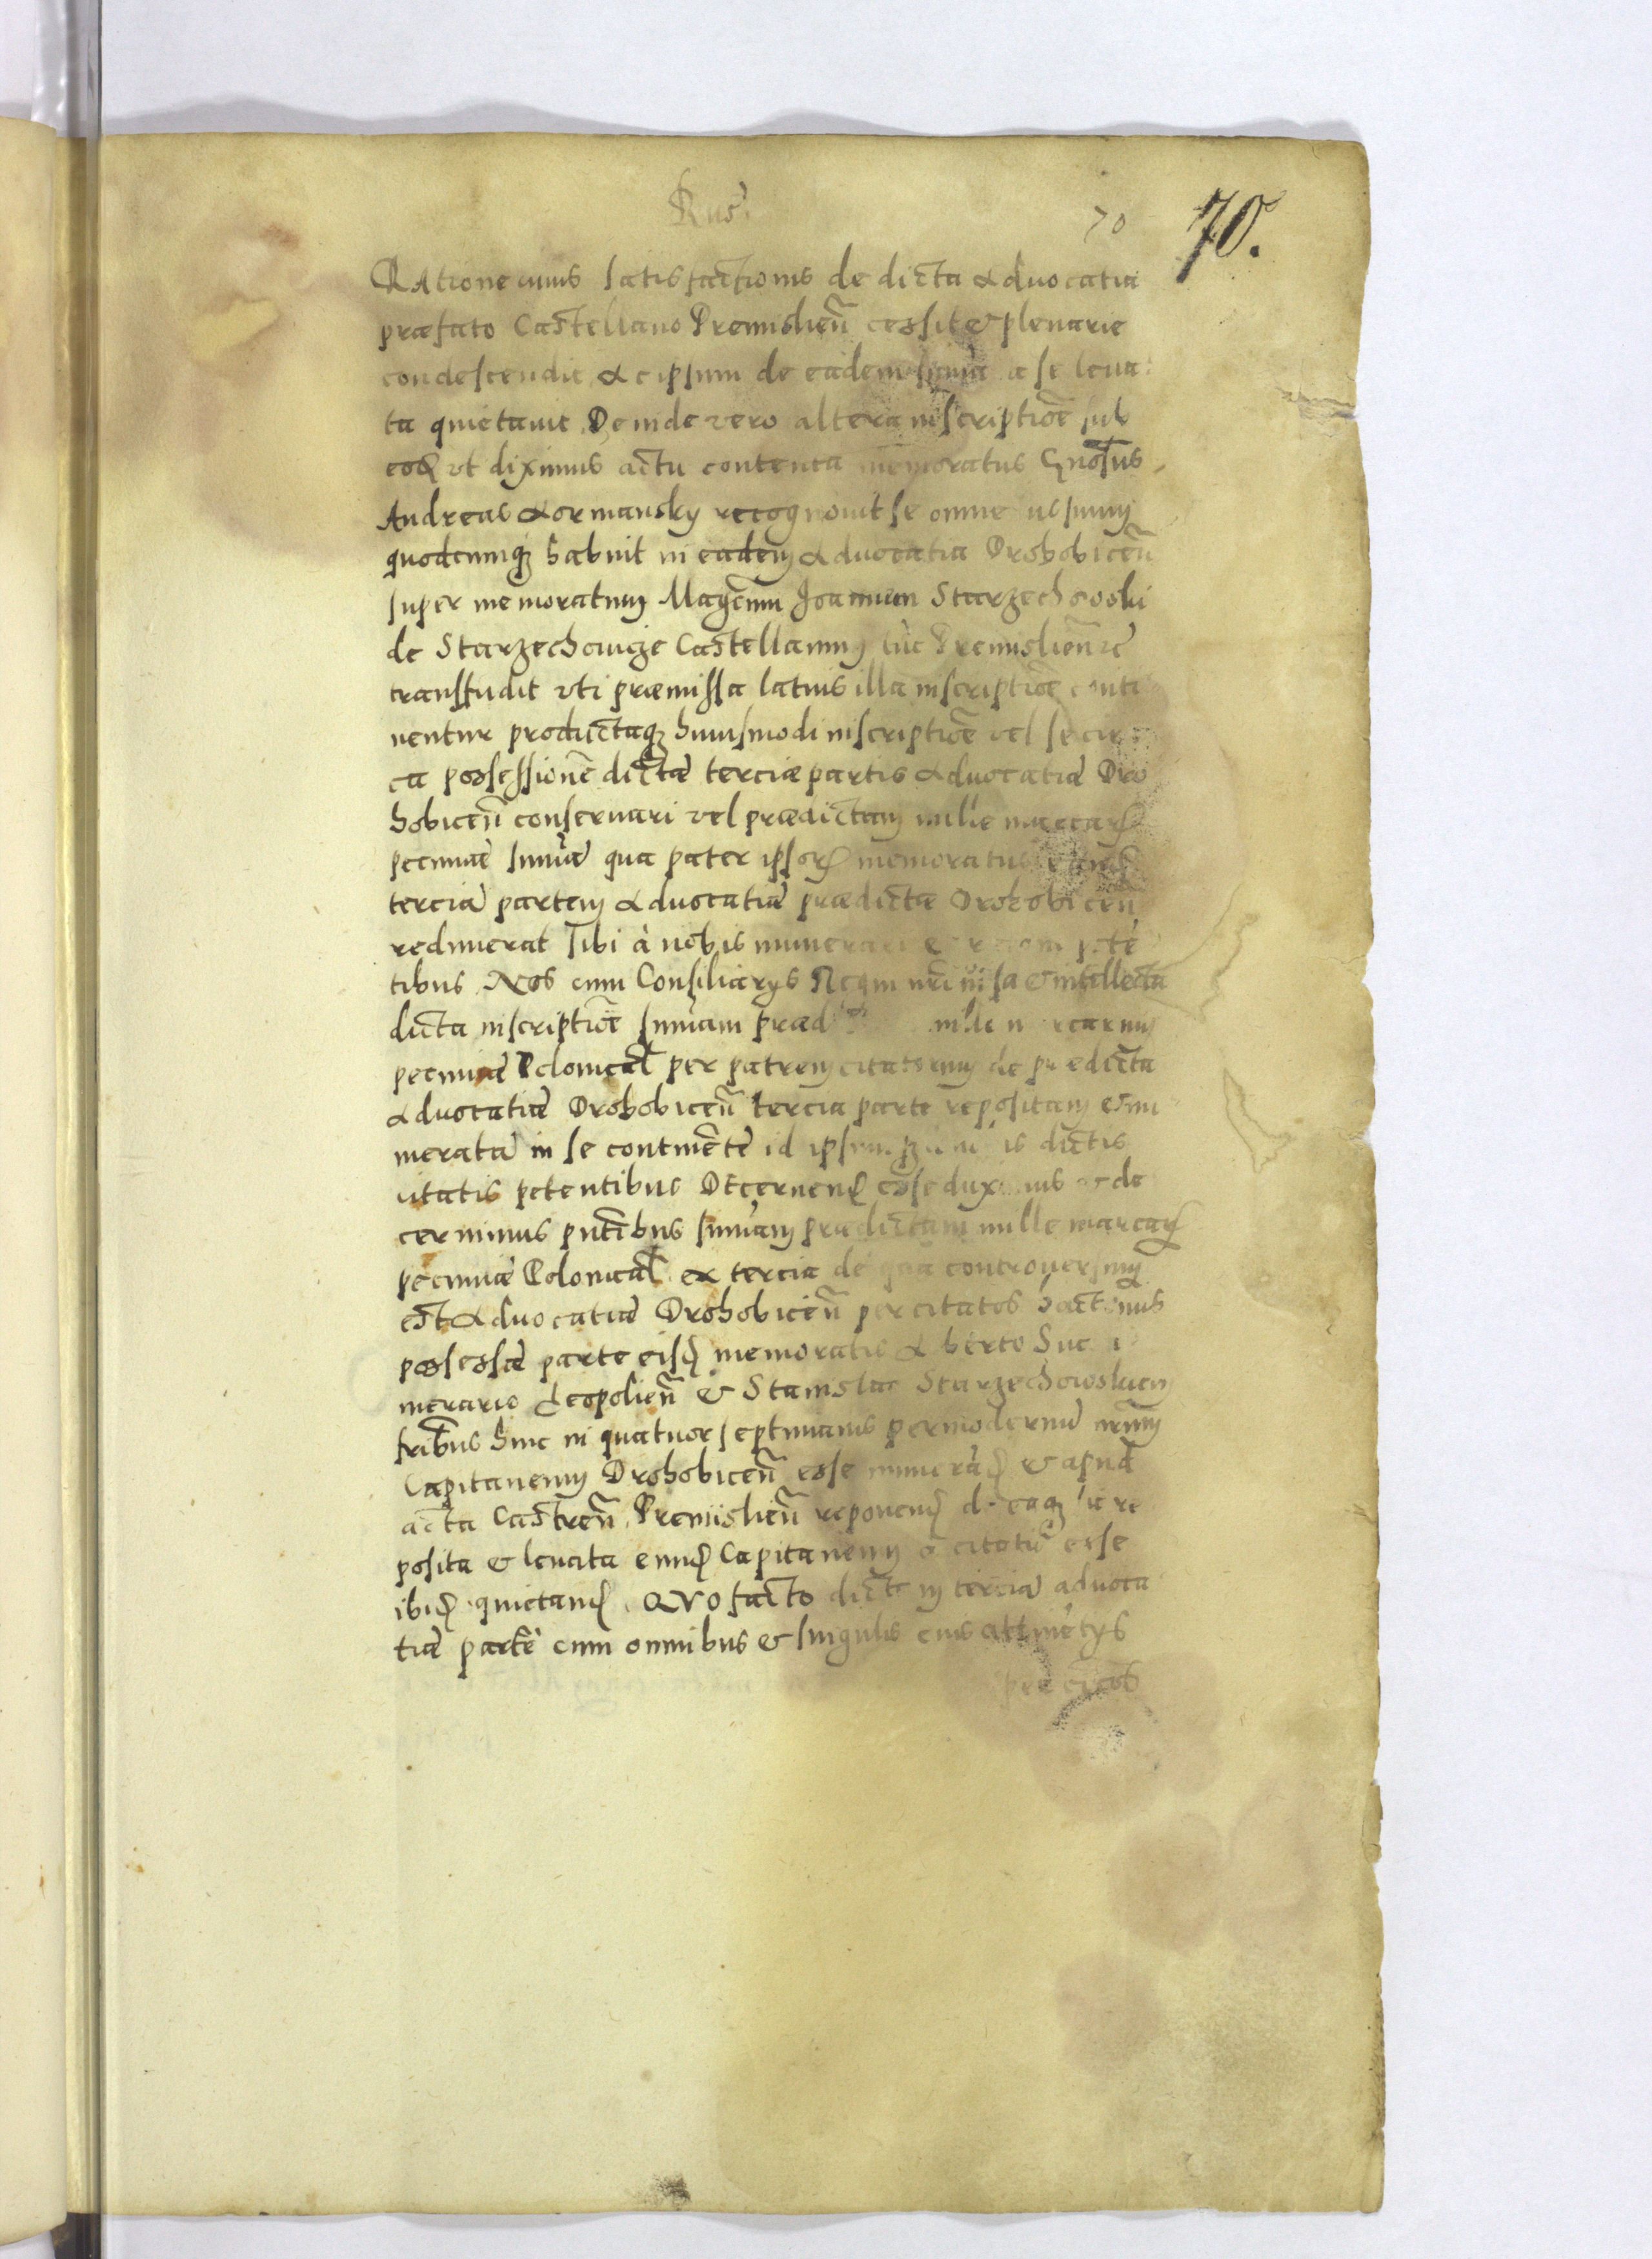 Rus.
70 70.
Ratione cuius satisfactionis de dicta Advocatia
præfato Castellano Premislien̄ cessit & plenarie
condescendit, ac ipsum de eadem sum̄a a se leva
ta quietavit. Deinde vero altera inscriptiōe sub
eod̄ vt diximus actu contenta memoratus Gn̄osus
Andreas Kormansky recognovit se omne ius suum
quodcumq; habuit in eadem Advocatia Drohobicen̄
super memoratum Mag̅cum Joannem Starzechowski
de Starzechowicze Castellanum tūc Premislien̄
transfudit vti præmissa latius illa inscriptiōe conti
nentur productaq; huiusmodi inscriptiōe vel se cir
ca possessionē dictæ terciæ partis Advocatiæ Dro
hobicen̄ conservari vel prædictam mille marcar̄
pecuniæ sum̄ā qua pater ipsor̄ memoratus
terciā partem Advocatiæ prædictæ Drohobicen̄
redimerat sibi à nobis numerari petē
tibus. Nos cum Consiliarys Regni nr̄i visa & intellecta
dicta inscriptiōe sum̄am præd mille marcarum
pecuniæ Polonical̄ per patrem citatorum de prædicta
Advocatiæ Drohobicen̄ tercia parte repositam & nu
meratā in se continētē id ipsum dictis
citatis petentibus Decernend̄ cēse duximus de
cernimus pn̄tibus sum̄am prædictam mille marcar̄
pecuniæ Polonical̄ ex tercia de qua controversum
est Advocatiæ Drohobicen̄ per citatos hactenus
possessæ parte eisd̄ memoratis Alberto Succa
merario Leopolien̄ & Stanislao Starzechowskiem
fr̄ibus hinc in quatuor septimanis per modernū nr̄um
Capitaneum Drohobicen̄ esse numerād̄ & apud
acta Castren̄ Premislien̄ reponend̄ de eaq; sic re
posita & levata eund̄ Capitaneum a citatis esse
ibid̄ quietand̄. Quo facto dictam terciā advoca
tiæ partē cum omnibus & singulis eius attinētys
per citatos